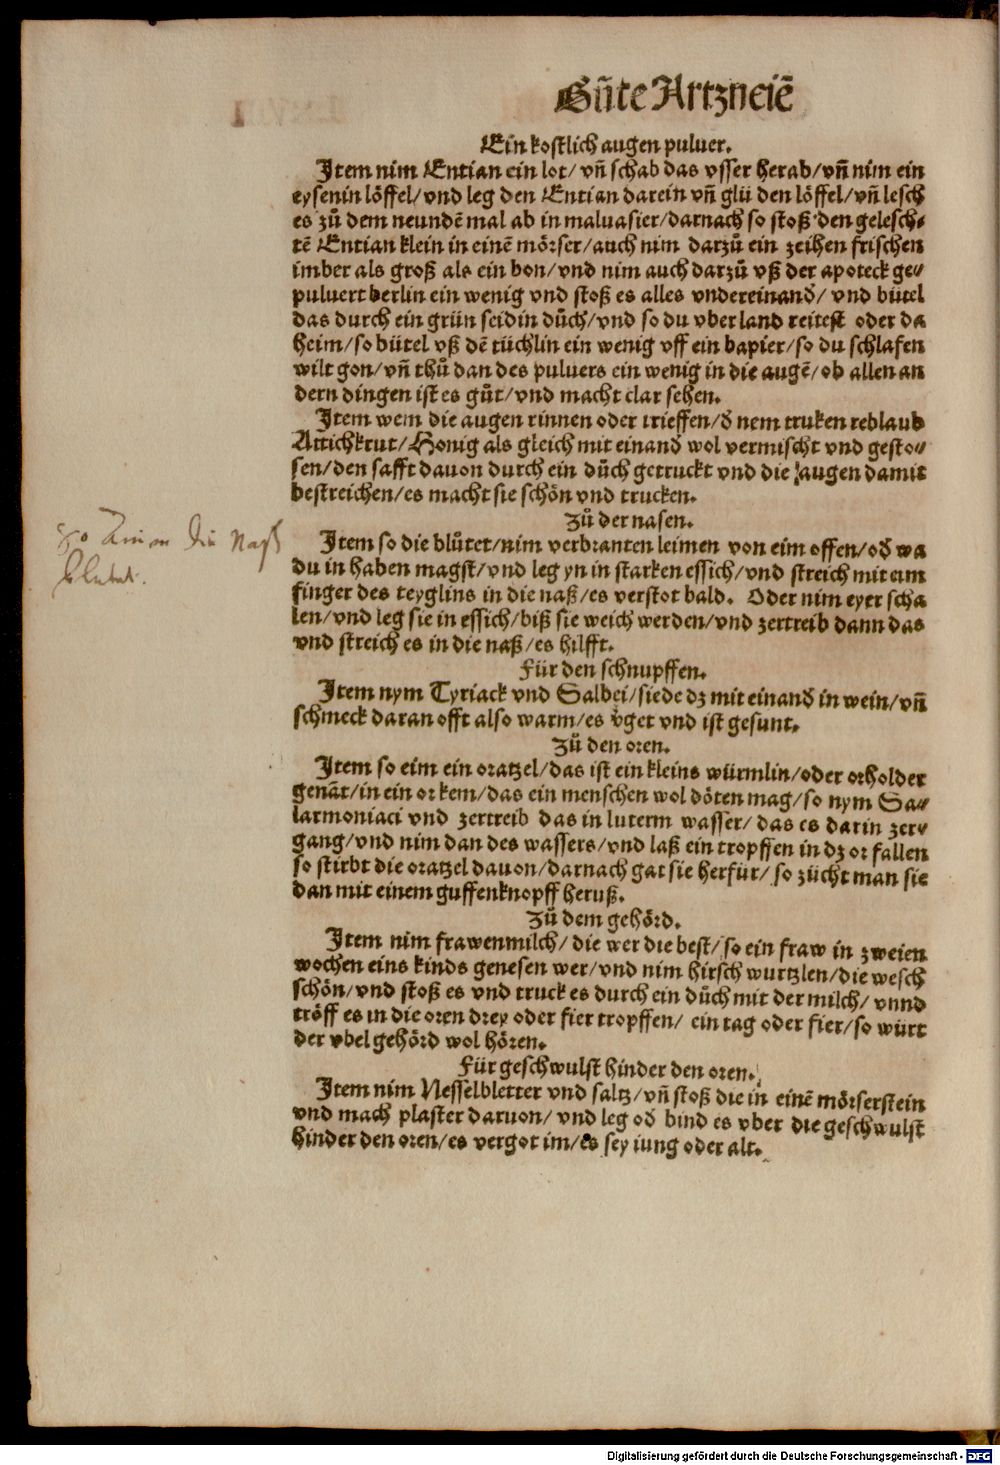 Gůte Artzneiẽ
Ein kostlich augen puluer.
Item nim Entian ein lot/ vñ schab das vsser herab/ vñ nim ein
eysenin löffel/ vnd leg den Entian darein vñ glü den löffel/ vñ lesch
es zů dem neundẽ mal ab in maluasier/ darnach so stoß den gelesch-
tẽ Entian klein in einẽ mörser/ auch nim darzů ein zeihen frischen
imber als groß als ein bon/ vnd nim auch darzů vß der apoteck ge-
puluert berlin ein wenig vnd stoß es alles vndereinand/ vnd bütel
das durch ein grün seidin důch/ vnd so du vber land reitest oder da
heim/ so bütel vß dẽ tüchlin ein wenig vff ein bapier/ so du schlafen
wilt gon/ vñ thů dan des puluers ein wenig in die augẽ/ ob allen an
dern dingen ist es gůt/ vnd macht clar sehen.
Item wem die augen rinnen oder trieffen/ d nem truken reblaub
Attichkrut/ Honig als gleich mit einand wol vermischt vnd gesto-
sen/ den safft dauon durch ein důch getruckt vnd die augen damit
bestreichen/ es macht sie schön vnd trucken.
Zů der nasen.
Item so die blůtet/ nim verbranten leimen von eim offen/ od wa
du in haben magst/ vnd leg yn in starken essich/ vnd streich mit eim
finger des teyglins in die naß/ es verstot bald. Oder nim eyer scha
len/ vnd leg sie in essich/ biß sie weich werden/ vnd zertreib dann das
vnd streich es in die naß/ es hilfft.
die Naß
blutet.
Für den schnupffen.
Item nym Tyriack vnd Salbei/ siede dz mit einand in wein/ vñ
schmeck daran offt also warm/ es vget vnd ist gesunt.
Zů den oren.
Item so eim ein oratzel/ das ist ein kleins würmlin/ oder orholder
genãt/ in ein or kem/ das ein menschen wol döten mag/ so nym Sa-
larmoniaci vnd zertreib das in luterm wasser/ das es darin zer-
gang/ vnd nim dan des wassers/ vnd laß ein tropffen in dz or fallen
so stirbt die oratzel dauon/ darnach gat sie herfür/ so zücht man sie
dan mit einem guffenknopff heruß.
Zů dem gehörd.
Item nim frawenmilch/ die wer die best/ so ein fraw in zweien
wochen eins kinds genesen wer/ vnd nim hirsch wurtzlen/ die wesch
schön/ vnd stoß es vnd truck es durch ein důch mit der milch/ vnnd
tröff es in die oren drey oder fier tropffen/ ein tag oder fier/ so würt
der vbel gehörd wol hören.
Für geschwulst hinder den oren.
Item nim Nesselbletter vnd saltz/ vñ stoß die in einẽ mörserstein
vnd mach plaster daruon/ vnd leg od bind es vber die geschwulst
hinder den oren/ es vergot im/ es sey iung oder alt.
Digitalisierung gefördert durch die Deutsche Forschungsgemeinschaft - DFG